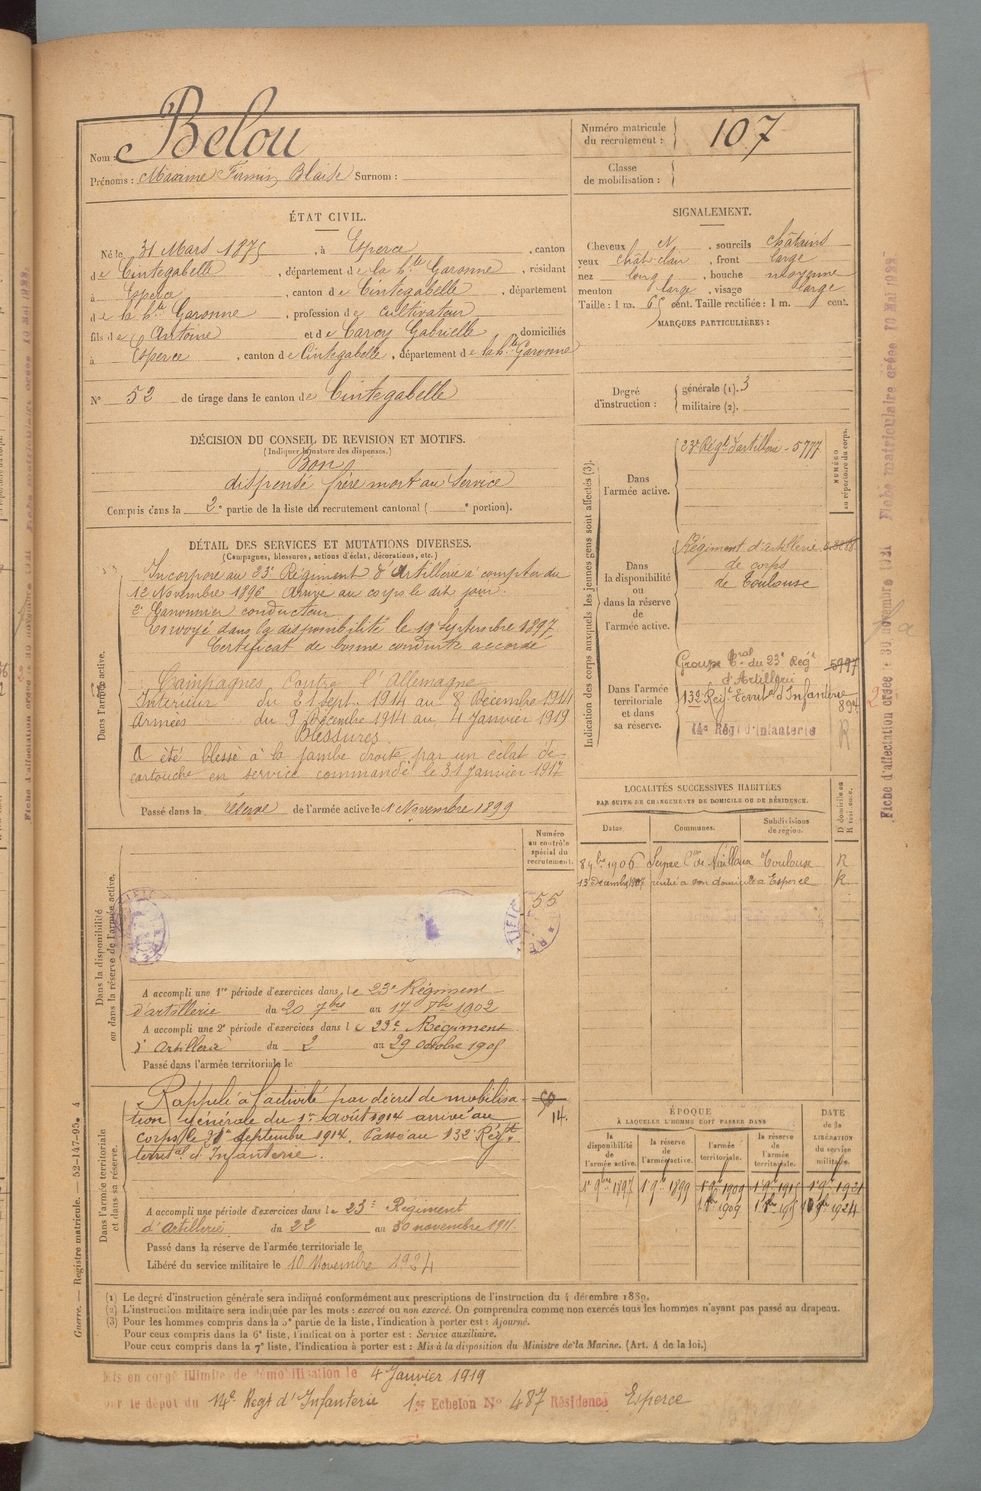 Nom : Belou
Prénoms : Maxime Firmin Blaise Surnom :
Numéro matricule du recrutement : 107
Classe de mobilisation :
ÉTAT CIVIL.
Né le 31 Mars 1875, à Esperce, canton
de Cintegabelle, département de la hte Garonne, résidant
à Esperce, canton de Cintegabelle, département
de la hte Garonne, profession de cultivateur
fils de Antoine et de Carcy Gabrielle, domiciliés
à Esperce, canton de Cintegabelle, département de la hte Garonne
N° 52 de tirage dans le canton de Cintegabelle
SIGNALEMENT.
Cheveux N, sourcils châtains
yeux chât clair, front large
nez long, bouche moyenne
menton large, visage large
Taille : 1 m. 65 cent. Taille rectifiée : 1 m. cent.
MARQUES PARTICULIÈRES :
Degré d'instruction : générale (1). 3
militaire (2).
DÉCISION DU CONSEIL DE REVISION ET MOTIFS.
(Indiquer la nature des dispenses.)
Bon
dispensé frère mort au service
Compris dans la 2e partie de la liste du recrutement cantonal ( e portion).
DÉTAIL DES SERVICES ET MUTATIONS DIVERSES.
(Campagnes, blessures, actions d'éclat, décorations, etc.)
Dans l'armée active.
Incorporé au 23e Régiment d'Artillerie à compter du
12 Novembre 1896 Arrivé au corps le dit jour.
2e Canonnier conducteur
Envoyé dans la disponibilité le 19 Septembre 1897
Certificat de bonne conduite accordé
Campagnes Contre l'Allemagne
Intérieur du 21 sept. 1914 au 8 Décembre 1914
Armées du 9 Décembre 1914 au 4 Janvier 1919
Blessures
A été blessé à la jambe droite par un éclat de
cartouche en service commandé le 31 Janvier 1917
Passé dans la réserve de l'armée active le 1 Novembre 1899
Indication des corps auxquels les jeunes gens sont affectés (3).
NUMÉRO au répertoire du corps.
Dans l'armée active.
23e Régt d'artillerie - 5777
Dans la disponibilité ou dans la réserve de l'armée active.
Régiment d'artillerie
de corps
de Toulouse
Dans l'armée territoriale et dans sa réserve.
Groupe tral du 23e Régt 5997
d'Artillerie
132 Régt Territ d'Infanterie
894
14e Rég. d'Infanterie
R
LOCALITÉS SUCCESSIVES HABITÉES
PAR SUITE DE CHANGEMENTS DE DOMICILE OU DE RÉSIDENCE.
Dates. Communes. Subdivisions de région. D domicile ou R résidence.
8 1906 Seyre Con de Nailloux Toulouse R
13 Décembre 1907 rentré à son domicile à Esperce R
Numéro au contrôle spécial du recrutement.
55
Dans la disponibilité ou dans la réserve de l'armée active.
A accompli une 1re période d'exercices dans le 23e Régiment
d'artillerie du 20 7bre au 17 8bre 1902
A accompli une 2e période d'exercices dans le 23e Régiment
d'Artillerie du 2 au 29 octobre 1905
Passé dans l'armée territoriale le
Dans l'armée territoriale et dans sa réserve.
Rappelé à l'activité par décret de mobilisa-
tion générale du 1er Août 1914 arrivé au
corps le 21 septembre 1914. Passé au 132e Régt
territal d'Infanterie.
14.
A accompli une période d'exercices dans le 23e Régiment
d'Artillerie du 22 au 30 novembre 1911.
Passé dans la réserve de l'armée territoriale le
Libéré du service militaire le 10 Novembre 1924
ÉPOQUE
À LAQUELLE L'HOMME DOIT PASSER DANS
la disponibilité de l'armée active. la réserve de l'armée active. l'armée territoriale. la réserve de l'armée territoriale. DATE de la LIBÉRATION du service militaire.
1er 9bre 1897 1er 9bre 1899 1er 9bre 1909 1er 9bre 1915 1er 9bre 1921
1909 10 9bre 1924
(1) Le degré d'instruction générale sera indiqué conformément aux prescriptions de l'instruction du 4 décembre 1889.
(2) L'instruction militaire sera indiquée par les mots : exercé ou non exercé. On comprendra comme non exercés tous les hommes n'ayant pas passé au drapeau.
(3) Pour les hommes compris dans la 5e partie de la liste, l'indication à porter est : Ajourné.
Pour ceux compris dans la 6e liste, l'indication à porter est : Service auxiliaire.
Pour ceux compris dans la 7e liste, l'indication à porter est : Mis à la disposition du Ministre de la Marine. (Art. 4 de la loi.)
Mis en congé illimité de démobilisation le 4 Janvier 1919
par le dépôt du 14e Régt d'Infanterie 1er Echelon N° 487 Résidence Esperce
Guerre. — Registre matricule. — 52-147-95. 4
Fiche d'affectation créée : 30 novembre 1921 Fiche matriculaire créée 10 Mai 1922.